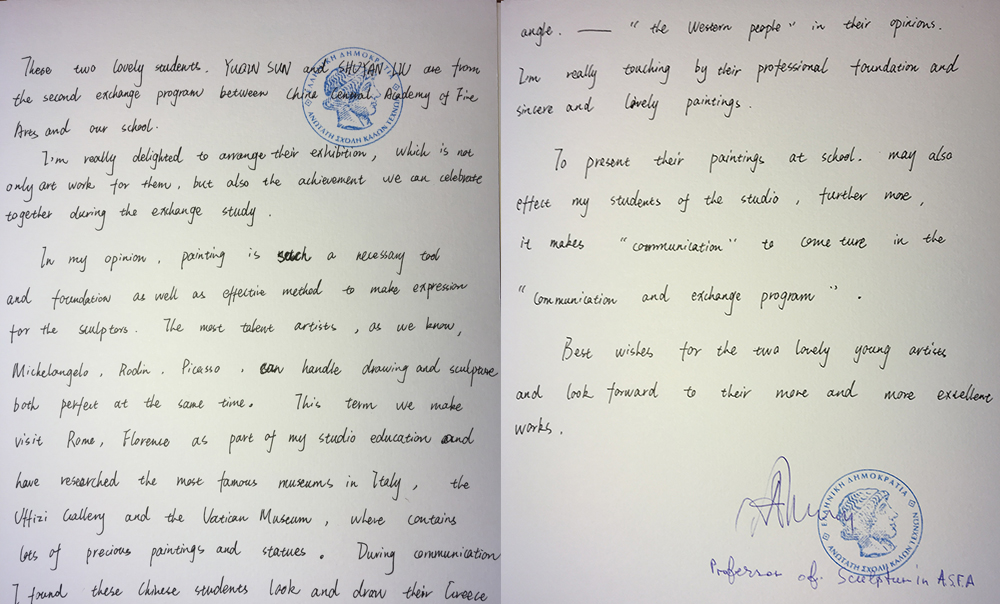 These two lovely students. YUQIN SUN and SHUYAN LIU are from
the second exchange program between China Central Academy of Fine
Ares and our school.
I'm really delighted to arrange their exhibition, which is not
only art work for them, but also the achievement we can celebrate
together during the exchange study.
In my opinion, painting is such a necessary tool
and foundation as well as effective method to make expression
for the sculptors. The most talent artists, as we know,
Michelangelo, Rodin, Picasso, can handle drawing and sculpture
both perfect at the same time. This term we make
visit Rome, Florence as part of my studio education and
have researched the most famous museums in Italy, the
Uffizi Gallery and the Vatican Museum, where contains
lots of precious paintings and statues. During communication
I found these Chinese students look and draw their Greece
angle. — "the Western people" in their opinions.
I'm really touching by their professional foundation and
sincere and lovely paintings.
To present their paintings at school. may also
effect my students of the studio, further more,
it makes "communication" to come ture in the
"communication and exchange program".
Best wishes for the two lovely young artists
and look forward to their more and more excellent
works.
Professor of Sculpture in ASFA
ΕΛΛΗΝΙΚΗ ΔΗΜΟΚΡΑΤΙΑ
ΑΝΩΤΑΤΗ ΣΧΟΛΗ ΚΑΛΩΝ ΤΕΧΝΩΝ
ΕΛΛΗΝΙΚΗ ΔΗΜΟΚΡΑΤΙΑ
ΑΝΩΤΑΤΗ ΣΧΟΛΗ ΚΑΛΩΝ ΤΕΧΝΩΝ